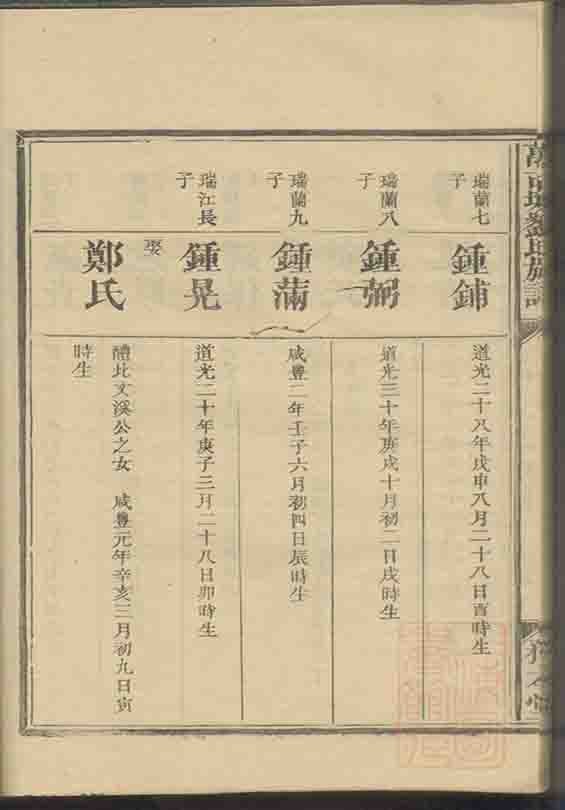 瑞蘭七
子
鍾鋪
道光二十八年戊申八月二十八日酉時生
瑞蘭八
子
鍾弼
道光三十年庚戌十月初二日戌時生
瑞蘭九
子
鍾蒲
咸豐二年壬子六月初四日辰時生
瑞江長
子
鍾晃
道光二十年庚子三月二十八日卯時生
娶
鄭氏
醴北文溪公之女 咸豐元年辛亥三月初九日寅
時生